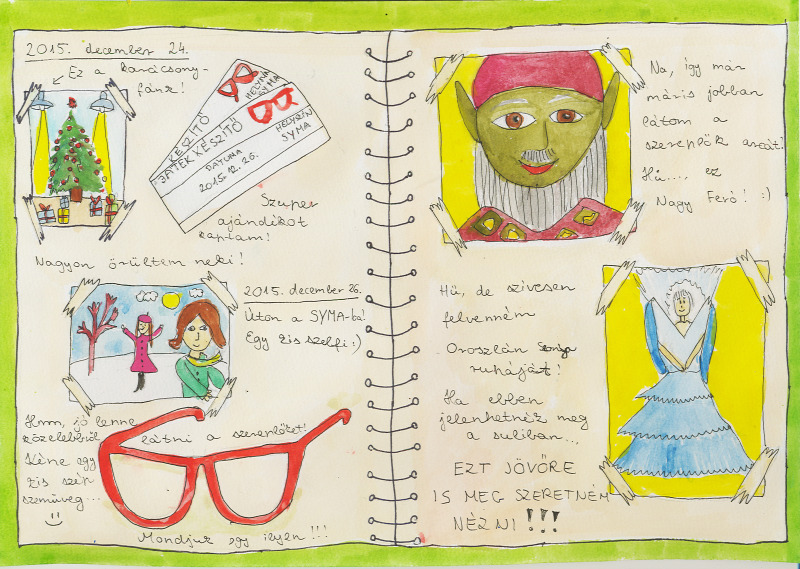 2015. december 24.
Ez a karácsony-
fánk!
KÉSZÍTŐ
JÁTÉK KÉSZÍTŐ
DÁTUMA
2015. 12. 26.
HELYSZÍN
SYMA
HELYSZÍN
SYMA
Szuper
ajándékot
kaptam!
Nagyon örültem neki!
2015. december 26.
Úton a SYMA-ba!
Egy kis szelfi :)
Hmm, jó lenne
közelebbről
látni a szereplőket!
Kéne egy
kis szép
szemüveg...
Mondjuk egy ilyen!!!
Na, így már
máris jobban
látom a
szereplők arcát!
Hű..., ez
Nagy Feró! :)
Hű, de szívesen
felvenném
Oroszlán Szonja
ruháját!
Ha ebben
jelenhetnék meg
a suliban...
EZT JÖVŐRE
IS MEG SZERETNÉM
NÉZNI!!!